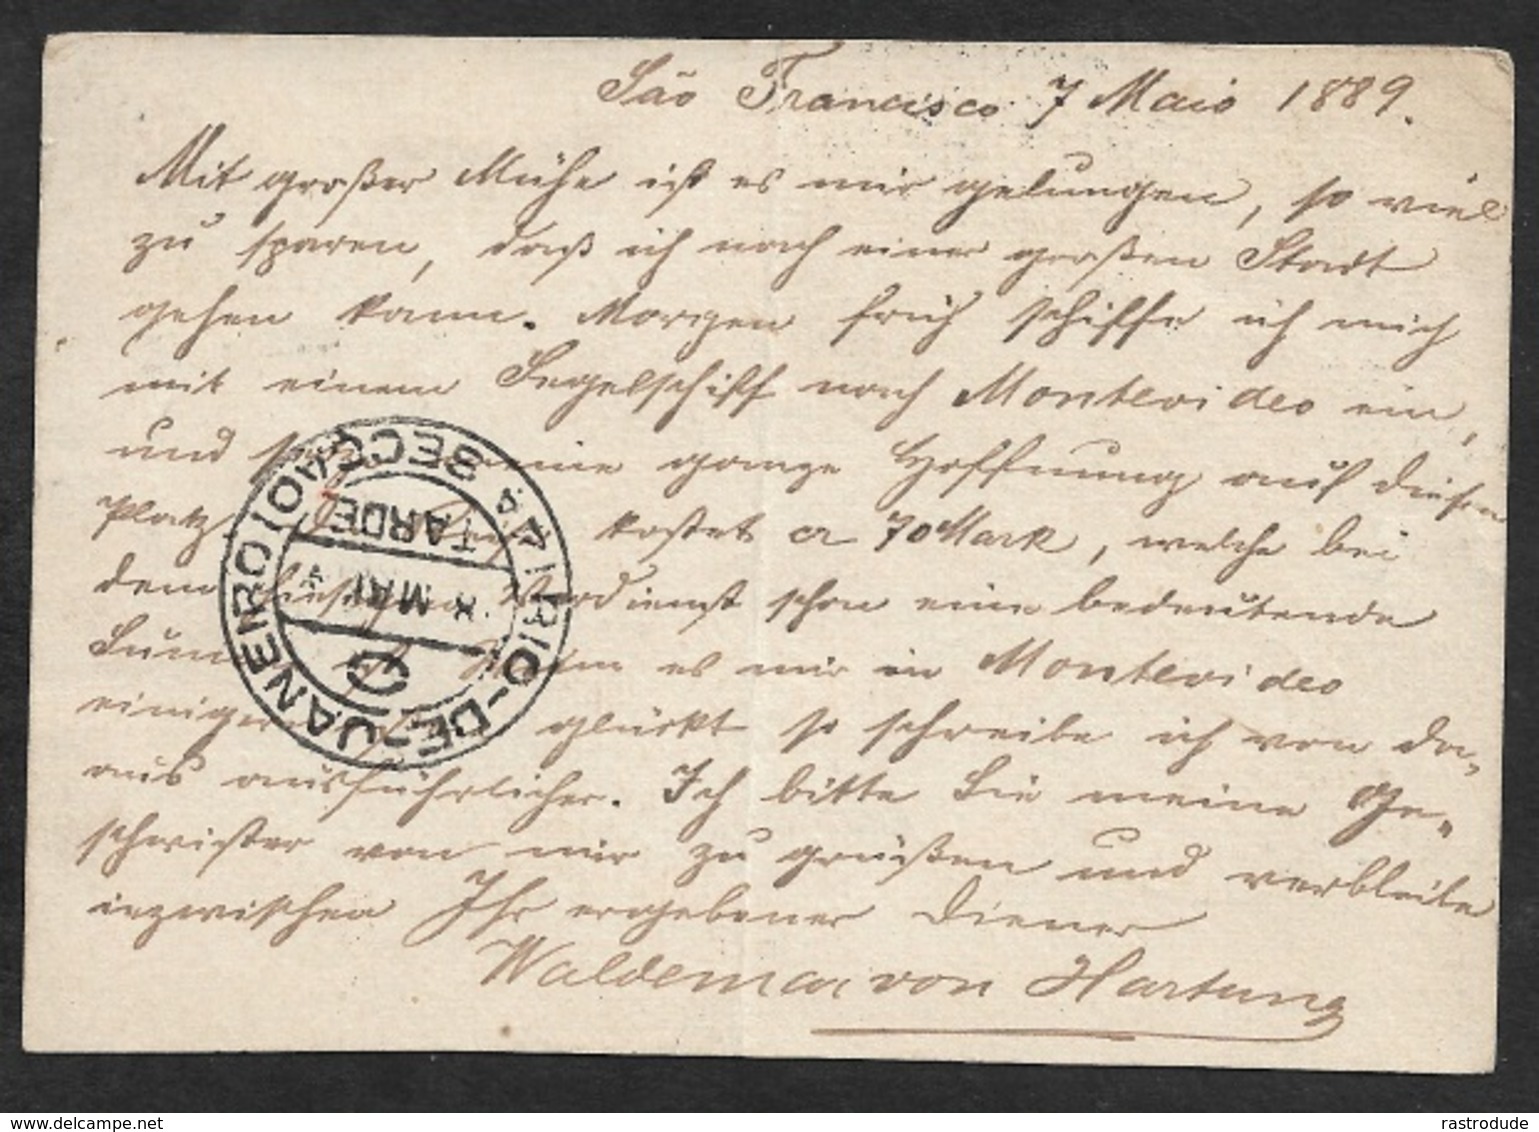 São Francisco 7 Maio 1889.
Mit großer Mühe ist es mir gelungen, so viel
zu sparen, daß ich nach einer großen Stadt
gehen kann. Morgen früh schiffe ich mich
mit einem Segelschiff nach Montevideo ein,
und meine ganze Hoffnung auf diesen
Platz kostet ca 70 Mark, welche bei
dem hiesigen Verdienst schon eine bedeutende
Summe ist. Wenn es mir in Montevideo
einiger glückt so schreibe ich von da-
aus ausführlicher. Ich bitte Sie meine Ge-
schwister von mir zu grüßen und verbleibe
inzwischen Ihr ergebener Diener
Waldemar von Hartung
4ª SECÇÃO 1º TARDE
8 MAI
RIO-DE-JANEIRO
rastrodude
www.delcampe.net